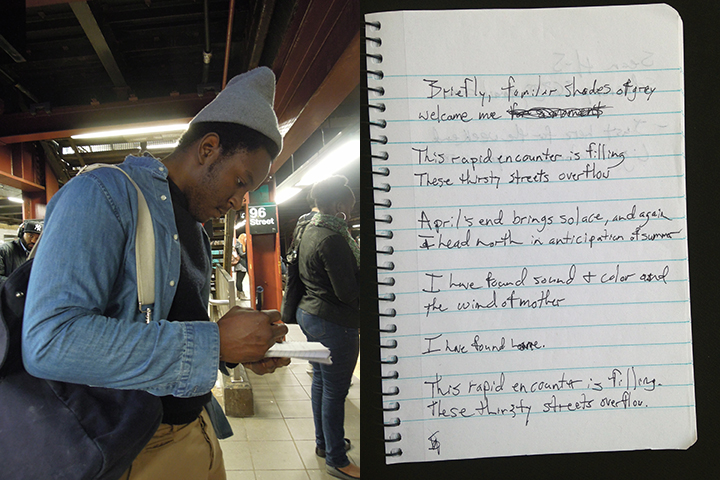 96
Street
Briefly, familar shades of grey
welcome me
This rapid encounter is filling
These thirsty streets overflow
April's end brings solace, and again
I head north in anticipation of summer
I have found sound & color and
the wind of mother
I have found home.
This rapid encounter is filling.
These thirsty streets overflow.